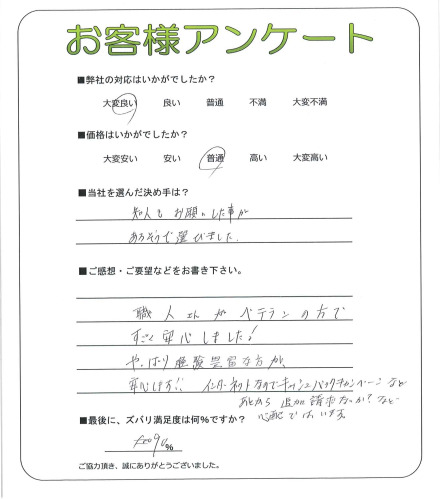 お客様アンケート
■弊社の対応はいかがでしたか？
大変良い 良い 普通 不満 大変不満
■価格はいかがでしたか？
大変安い 安い 普通 高い 大変高い
■当社を選んだ決め手は？
知人もお願いした事が
あるそうで選びました。
■ご感想・ご要望などをお書き下さい。
職人さんがベテランの方で
すごく安心しました！
やっぱり経験豊富な方が、
安心します!! インターネットなのでキャッシュバックキャンペーンなど
あとから追加請求ないか？など
心配ではいます。
■最後に、ズバリ満足度は何%ですか？
90%
ご協力頂き、誠にありがとうございました。